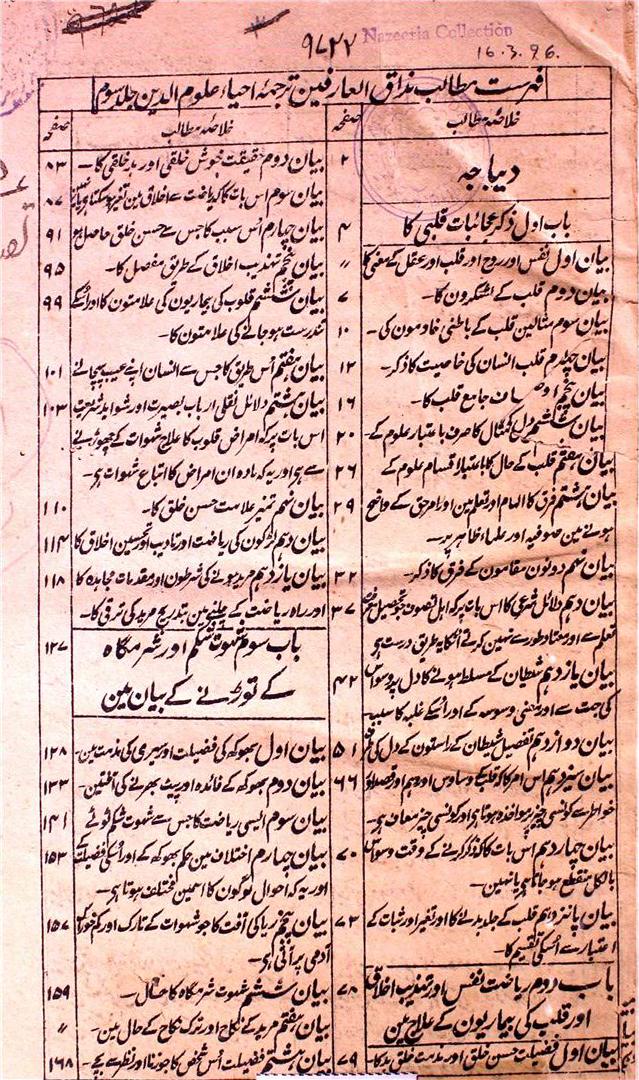 ۹۷۲۲
Nazeeria Collection
16.3.96.
فہرست مطالب مذاق العارفین ترجمۂ احیاء علوم الدین جلد سوم
خلاصۂ مطالب
صفحہ
دیباجہ
۲
باب اول ذکر عجائبات قلبی کا
۴
بیان اول نفس اور روح اور قلب اور عقل کے معنی کا
〃
بیان دوم قلب کے لشکرون کا۔
۷
بیان سوم مثالین قلب کے باطنی خادمون کی۔
۱۰
بیان چہارم قلب انسان کی خاصیت کا ذکر۔
۱۲
بیان پنجم جامع قلب کا۔
۱۶
بیان ششم دل کی مثال کا صرف باعتبار علوم کے۔
۲۰
بیان ہفتم قلب کے حال کا باعتبار اقسام علوم کے
۲۶
بیان ہشتم فرق کا الہام اور تعلم مین اور امر حق کے واضح
۲۹
ہونے مین صوفیہ اور علماء ظاہر پر۔
بیان نہم دونون مقامون کے فرق کا ذکر۔
۳۲
بیان دہم دلائل شرعی کا اس بات پر کہ اہل تصوف جو تحصیل
۳۷
تعلم سے اور معتاد طور سے نہین کرتے انکا یہ طریق درست ہی
بیان یازدہم شیطان کے مسلط ہونے کا دل پر وسواس
۴۲
کی جہت سے اور معنی وسوسہ کے اور اسکے غلبہ کا سبب
بیان دوازدہم تفصیل شیطان کے راستون کے دل کی طرف
۵۱
بیان سیزدہم اس امر کا کہ قلب کے وساوس اور وہم اور قصد اور
۶۶
خواطر سے کونسی چیز پر مواخذہ ہوتا ہی اور کونسی چیز معاف ہی۔
بیان چہاردہم اس بات کا کہ ذکر کرنے کے وقت وسواس
۷۰
بالکل منقطع ہو جاتا ہی یا نہین۔
بیان پانزدہم قلب کے جلد بدلنے کا اور تغیر اور ثبات کے
۷۳
اعتبار سے اسکی تقسیم کا۔
باب دوم ریاضت نفس اور تہذیب اخلاق
۷۸
اور قلب کی بیماریون کے علاج مین
بیان اول فضیلت حسن خلق اور مذمت خلق بد کا۔
۷۹
خلاصۂ مطالب
صفحہ
بیان دوم حقیقت خوش خلقی اور بد خلقی کا۔
۸۳
بیان سوم اس بات کا کہ ریاضت سے اخلاق مین تغیر ہو سکتا ہی یا نہین
۸۷
بیان چہارم اس سبب کا جس سے حسن خلق حاصل ہو
۹۱
بیان پنجم تہذیب اخلاق کے طریق مفصل کا۔
۹۵
بیان ششم قلوب کی بیماریون کی علامتون کا اور انکے
۹۹
تندرست ہو جانے کی علامتون کا۔
بیان ہفتم اس طریق کا جس سے انسان اپنے عیب پہچانے
۱۰۱
بیان ہشتم دلائل نقلی ارباب بصیرت اور شواہد شریعت
۱۰۳
اس بات پر کہ امراض قلوب کا علاج شہوات کے چھوڑنے
سے ہی اور یہ کہ مادہ ان امراض کا اتباع شہوات ہی۔
بیان نہم تمیز علامت حسن خلق کا۔
۱۱۰
بیان دہم لڑکون کی ریاضت اور تادیب اور تحسین اخلاق کا
۱۱۴
بیان یازدہم مرید ہونے کی شرطون اور مقدمات مجاہدہ کا
۱۱۸
اور راہ ریاضت کے چلنے مین بتدریج مرید کی ترقی کا۔
باب سوم شہوت شکم اور شرمگاہ
۱۲۷
کے توڑنے کے بیان مین
بیان اول بھوکھ کی فضیلت اور سیری کی مذمت مین۔
۱۲۸
بیان دوم بھوکھ کے فائدہ اور پیٹ بھرنے کی آفتین۔
۱۳۳
بیان سوم ایسی ریاضت کا جس سے شہوت شکم ٹوٹے
۱۴۱
بیان چہارم اختلاف مین حکم بھوکھ کے اور اسکی فضیلت کے
۱۵۳
اور یہ کہ احوال لوگون کا اسمین مختلف ہوتا ہی۔
بیان پنجم ریا کی آفت کا جو شہوات کے تارک اور کم خوراک
۱۵۷
آدمی پر آتی ہی۔
بیان ششم شہوت شرمگاہ کا حال۔
۱۵۹
بیان ہفتم مرید کے نکاح اور ترک نکاح کے حال مین۔
〃
بیان ہشتم فضیلت اس شخص کا جو زنا اور نظر سے بچے۔
۱۶۸